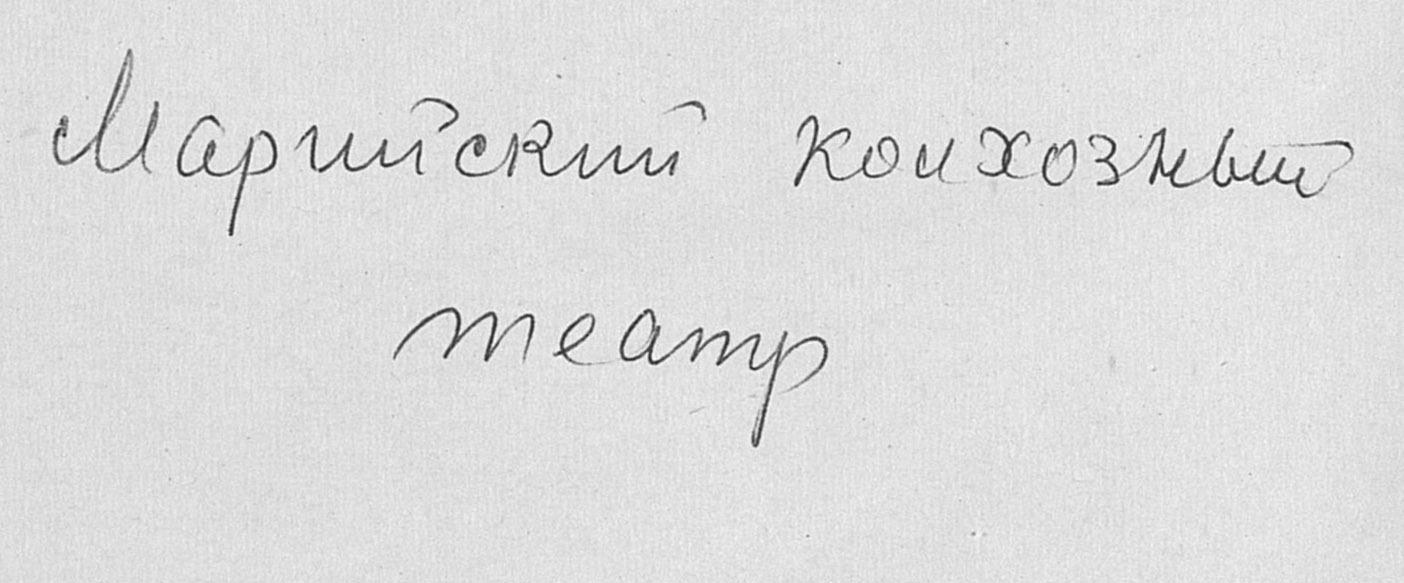 Марийский колхозный
театр